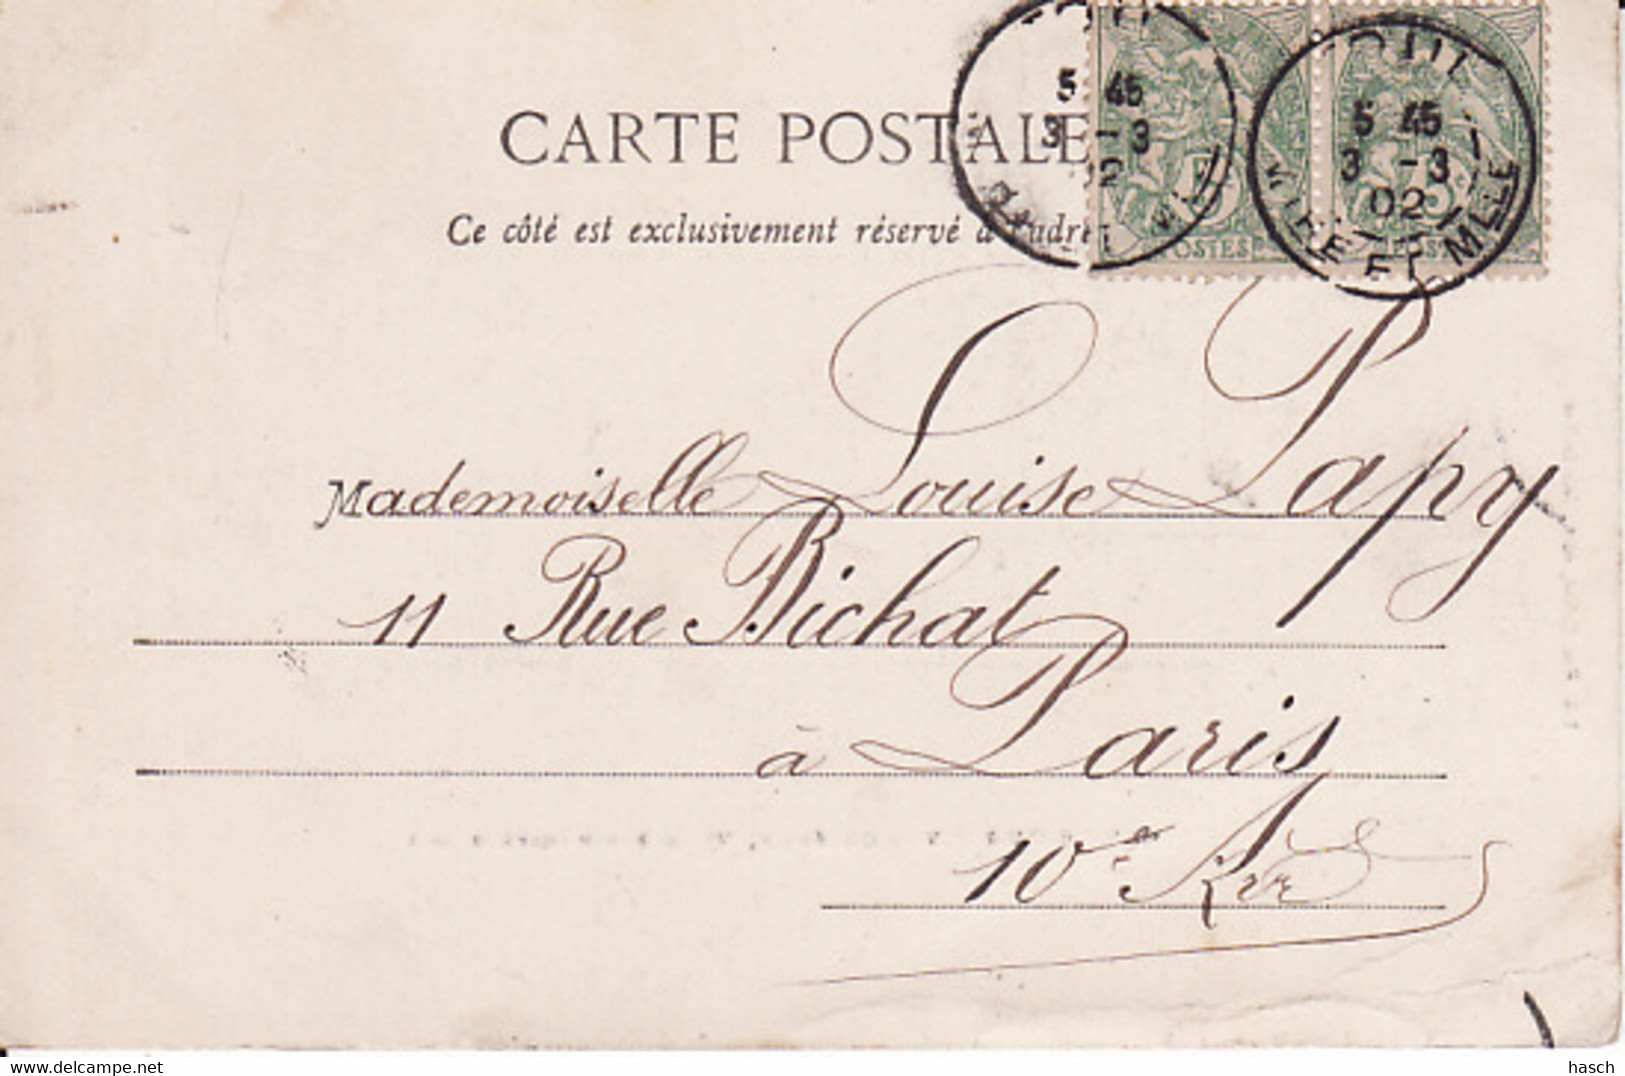 CARTE POSTALE
Ce côté est exclusivement réservé à l'adre
TOUL
5 45
3 -3
02
MTHE ET MLLE
5 45
3 -3
2
5
POSTES
Mademoiselle Louise Papy
11 Rue Bichat
à Paris
10e Arr
www.delcampe.net
hasch